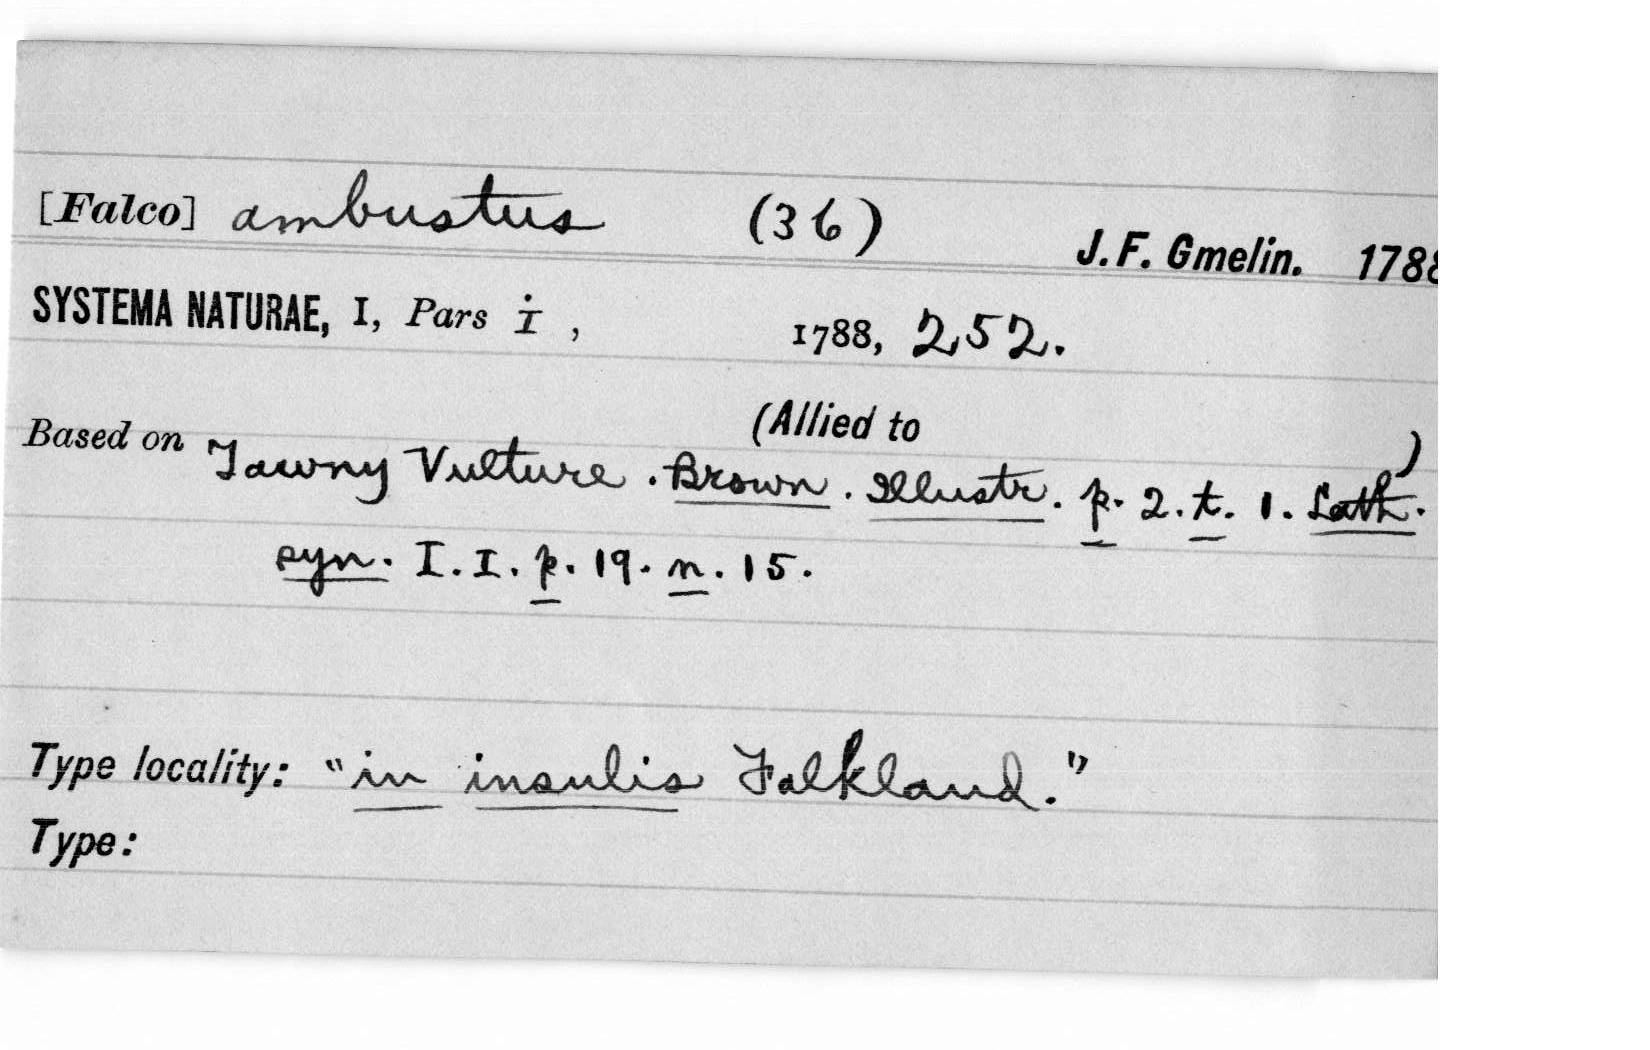 [Falco] ambustus (36) J. F. Gmelin. 1788
SYSTEMA NATURAE, I, Pars i, 1788, 252.
(Allied to )
Based on Tawny Vulture. Brown. Illustr. p. 2. t. 1. Lath.
syn. I. I. p. 19. n. 15.
Type locality: "in insulis Falkland."
Type: